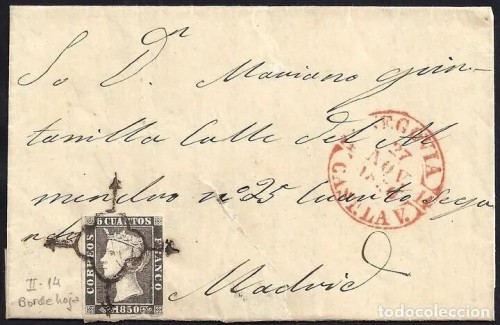 Sor Dn Mariano Quin-
tanilla Calle del Al
mendro nº 25 Cuarto segu
ndo
Madrid
SEGOVIA
27
NOV
CAST. LA V.
6 CUARTOS
CORREOS
FRANCO
1850
II-14
Borde hoja
todocoleccion